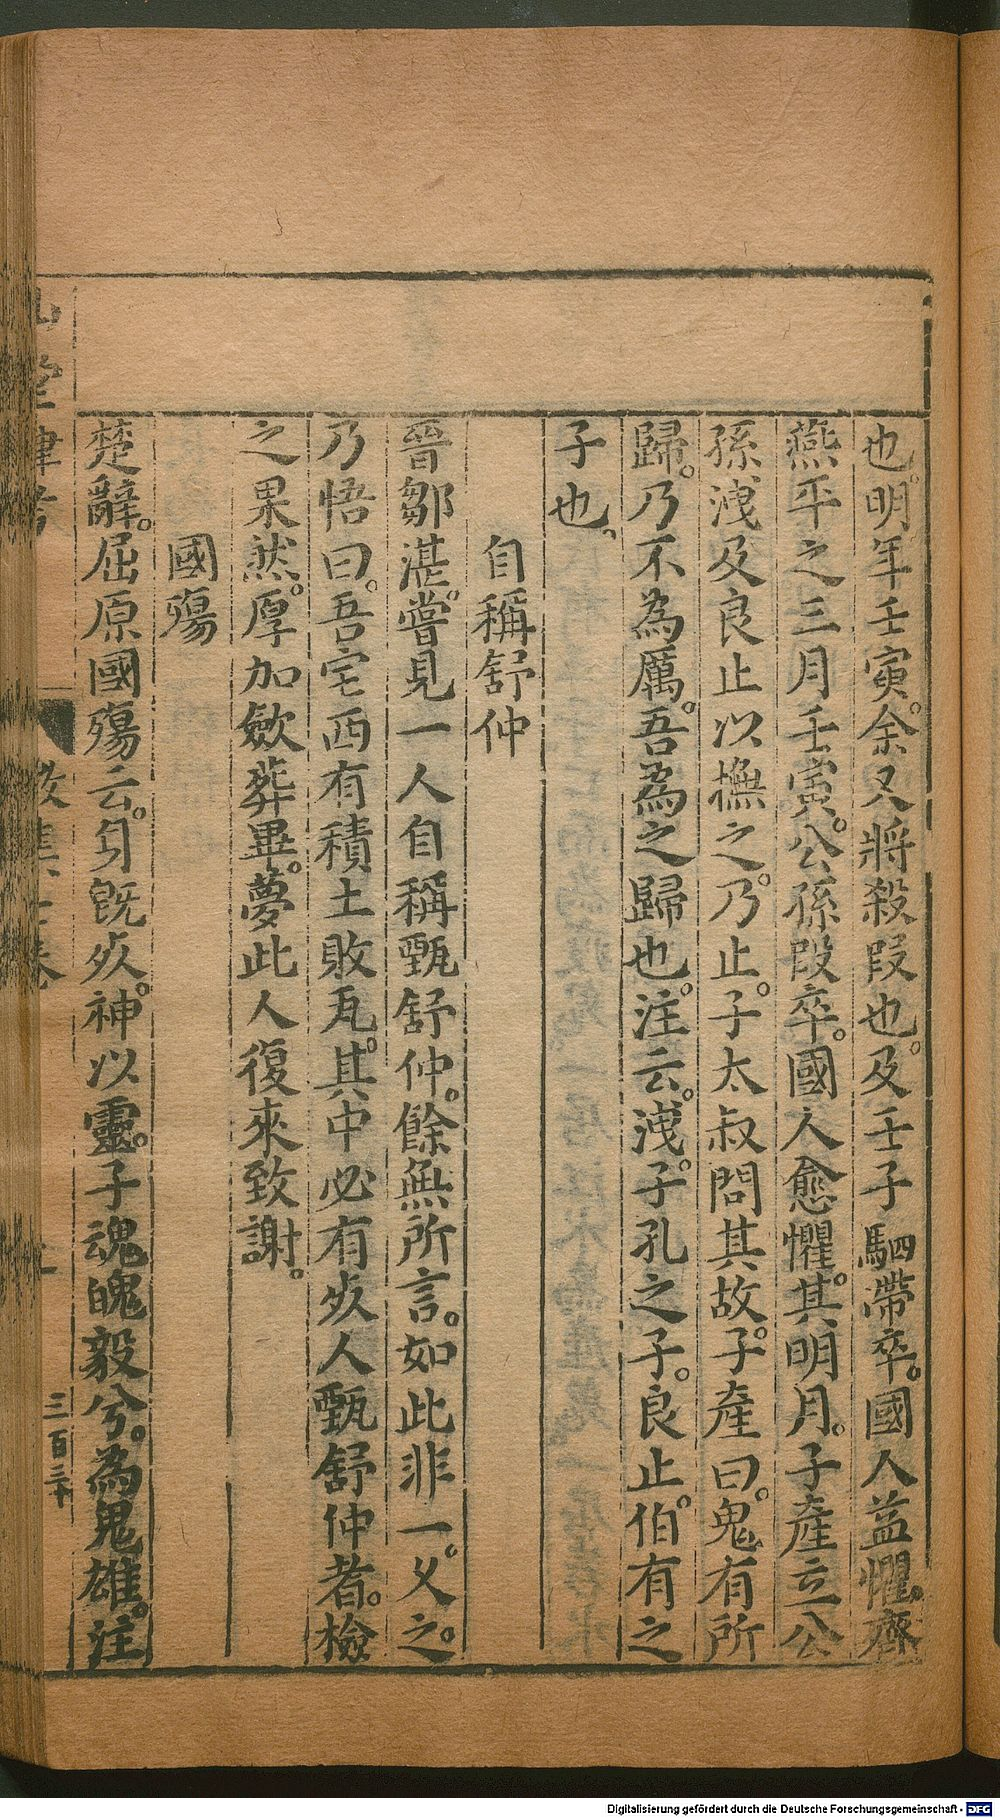 也。明年壬寅。余又將殺段也。及壬子駟滯卒。國人益懼。齊
燕平之三月壬寅。公孫段卒。國人愈懼。其明月。子產立公
孫洩及良止以撫之。乃止。子太叔問其故。子產曰。鬼有所
歸。乃不為厲。吾為之歸也。注云。洩。子孔之子。良止。伯有之
子也。
自稱舒仲
晉鄒湛。嘗見一人自稱甄舒仲。餘無所言。如此非一。乆之。
乃悟曰。吾宅西有積土敗瓦。其中必有歿人甄舒仲者。檢
之果然。厚加斂葬畢。夢此人復來致謝。
國殤
楚辭。屈原國殤云。身旣歿。神以靈。子魂魄毅兮。為鬼雄。注
三百三十
Digitalisierung gefördert durch die Deutsche Forschungsgemeinschaft - DFG